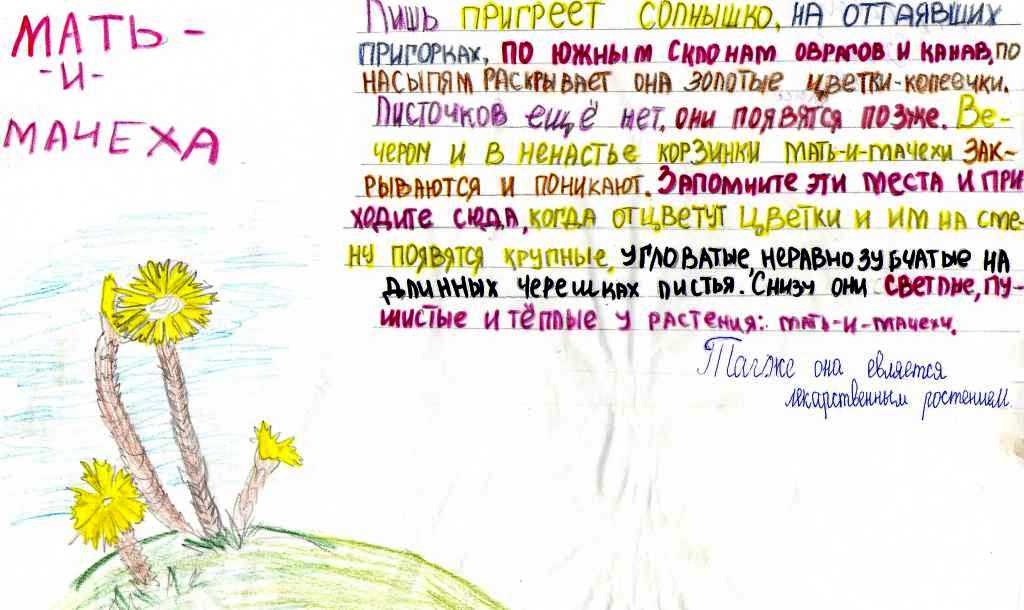 МАТЬ-
-И-
МАЧЕХА
Лишь ПРИГРЕЕТ СОЛНЫШКО, НА ОТТАЯВШИХ
ПРИГОРКАХ, ПО ЮЖНЫМ СКЛОНАМ ОВРАГОВ И КАНАВ, ПО
НАСЫПЯМ РАСКРЫВАЕТ ОНА ЗОЛОТЫЕ ЦВЕТКИ-КОПЕЕЧКИ.
ЛИСТОЧКОВ ЕЩЁ НЕТ, ОНИ ПОЯВЯТСЯ ПОЗЖЕ. ВЕ-
ЧЕРОМ И В НЕНАСТЬЕ КОРЗИНКИ МАТЬ-И-МАЧЕХИ ЗАК-
РЫВАЮТСЯ И ПОНИКАЮТ. ЗАПОМНИТЕ ЭТИ МЕСТА И ПРИ
ХОДИТЕ СЮДА, КОГДА ОТЦВЕТУТ ЦВЕТКИ И ИМ НА СМЕ-
НУ ПОЯВЯТСЯ КРУПНЫЕ, УГЛОВАТЫЕ, НЕРАВНОЗУБЧАТЫЕ НА
ДЛИННЫХ ЧЕРЕШКАХ ЛИСТЬЯ. СНИЗУ ОНИ СВЕТЛЫЕ, ПУ-
ШИСТЫЕ И ТЁПЛЫЕ У РАСТЕНИЯ: МАТЬ-И-МАЧЕХИ.
Также она евляется
лекарственным ростением.